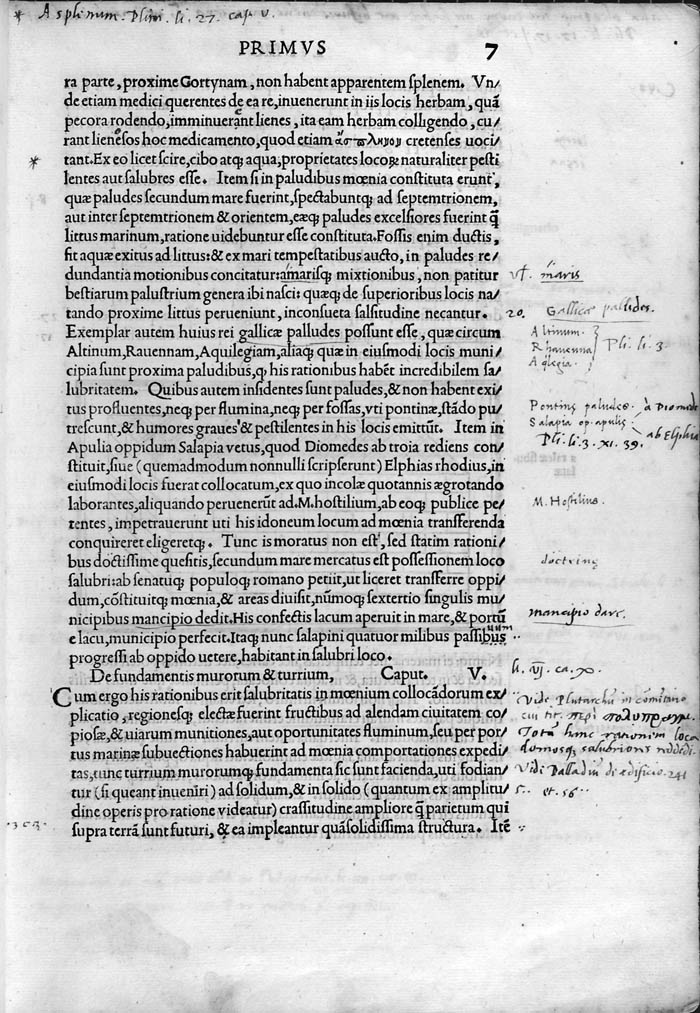 * Asplenum. Plini. li. 27. cap v.
PRIMVS 7
ra parte, proxime Gortynam, non habent apparentem splenem. Vn/
de etiam medici querentes de ea re, inuenerunt in iis locis herbam, quā
pecora rodendo, imminuerant lienes, ita eam herbam colligendo, cu/
rant lienosos hoc medicamento, quod etiam ἄσπληνον cretenses uoci/
* tant. Ex eo licet scire, cibo atq; aqua, proprietates locoꝝ naturaliter pesti
lentes aut salubres esse. Item si in paludibus mœnia constituta erunt,
quæ paludes secundum mare fuerint, spectabuntq; ad septemtrionem,
aut inter septemtrionem & orientem, eæq; paludes excelsiores fuerint q̄
littus marinum, ratione uidebuntur esse constituta. Fossis enim ductis,
fit aquæ exitus ad littus: & ex mari tempestatibus aucto, in paludes re/
dundantia motionibus concitatur: amarisq; mixtionibus, non patitur
maris
bestiarum palustrium genera ibi nasci: quæq; de superioribus locis na/
tando proxime littus perueniunt, inconsueta salsitudine necantur.
20. Gallicæ palludes.
Exemplar autem huius rei gallicæ palludes possunt esse, quæ circum
Altinum.
Altinum, Rauennam, Aquilegiam, aliaq; quæ in eiusmodi locis muni/
Rhauenna Pli. li. 3
cipia sunt proxima paludibus, q̨ his rationibus habēt incredibilem sa/
Aqlegia.
lubritatem. Quibus autem insidentes sunt paludes, & non habent exi/
tus profluentes, neq; per flumina, neq; per fossas, vti pontinæ, stādo pu/
Pontine paludes. à Diomede
trescunt, & humores graues & pestilentes in his locis emittūt. Item in
Salapia op. apulis ab Elphia
Apulia oppidum Salapia vetus, quod Diomedes ab troia rediens con/
Pli. li. 3. XI. 39.
stituit, siue (quemadmodum nonnulli scripserunt) Elphias rhodius, in
eiusmodi locis fuerat collocatum, ex quo incolæ quotannis ægrotando
laborantes, aliquando peruenerūt ad. M. hostilium, ab eoq; publice pe/
M. Hostilius.
tentes, impetrauerunt uti his idoneum locum ad mœnia transferenda
conquireret eligeretq;. Tunc is moratus non est, sed statim rationi/
bus doctissime quesitis, secundum mare mercatus est possessionem loco
salubri: ab senatuq; populoq; romano petiit, ut liceret transferre oppi/
dum, cōstituitq; mœnia, & areas diuisit, nūmoq; sextertio singulis mu/
nicipibus mancipio dedit. His confectis lacum aperuit in mare, & portū
mancipio dare.
e lacu, municipio perfecit. Itaq; nunc salapini quatuor milibus passibus
progressi ab oppido uetere, habitant in salubri loco.
De fundamentis murorum & turrium, Caput. V.
Cum ergo his rationibus erit salubritatis in mœnium collocādorum ex/
plicatio, regionesq; electæ fuerint fructibus ad alendam ciuitatem co/
Vide Plutarchū in comētario
cui tit. περὶ πολυπραγμ.
piosæ, & uiarum munitiones, aut oportunitates fluminum, seu per por/
Totā hanc rationem loca
tus marinæ subuectiones habuerint ad mœnia comportationes expedi/
domosq; salubriores reddēdi.
tas, tunc turrium murorumq; fundamenta sic sunt facienda, uti fodian/
Vide Palladiū de ædificio. 241
tur (si queant inueniri) ad solidum, & in solido (quantum ex amplitu/
5. et. 56
dine operis pro ratione videatur) crassitudine ampliore q̄ parietum qui
supra terrā sunt futuri, & ea impleantur quāsolidissima structura. Itē